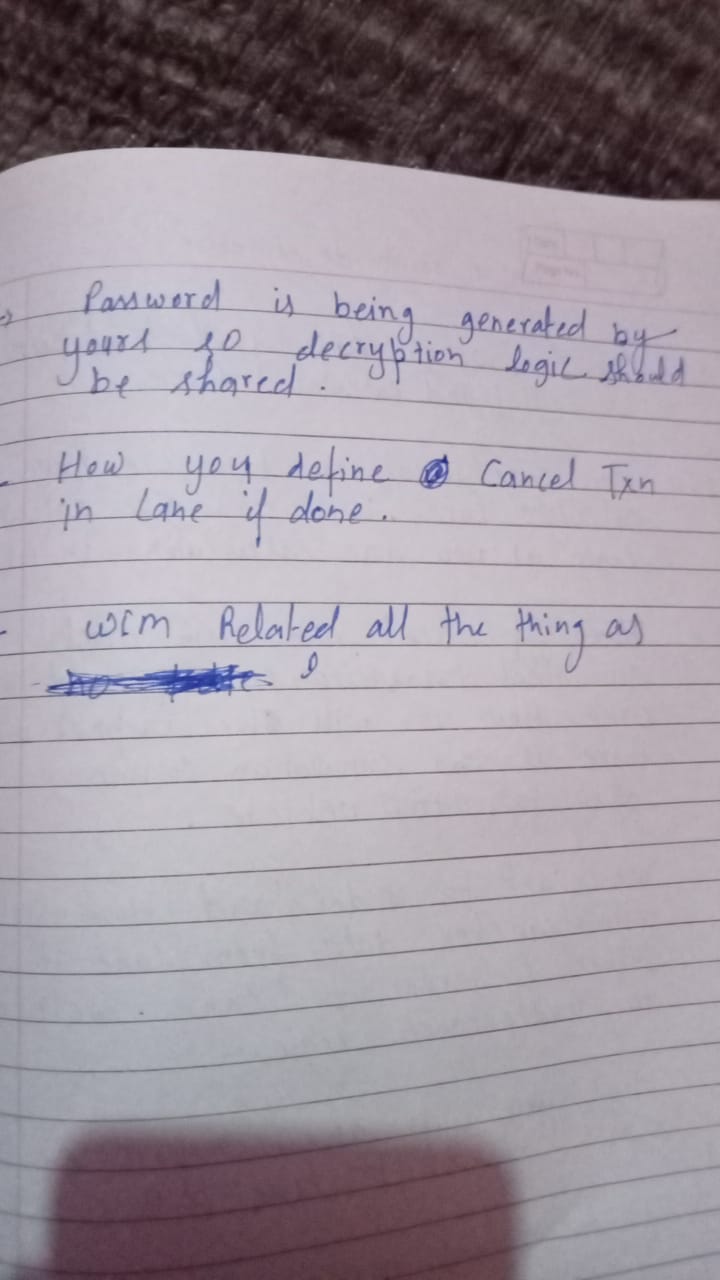 Password is being generated by
yours so decryption logic should
be shared.
How you define Cancel Txn
in Lane if done.
WIM Related all the thing as